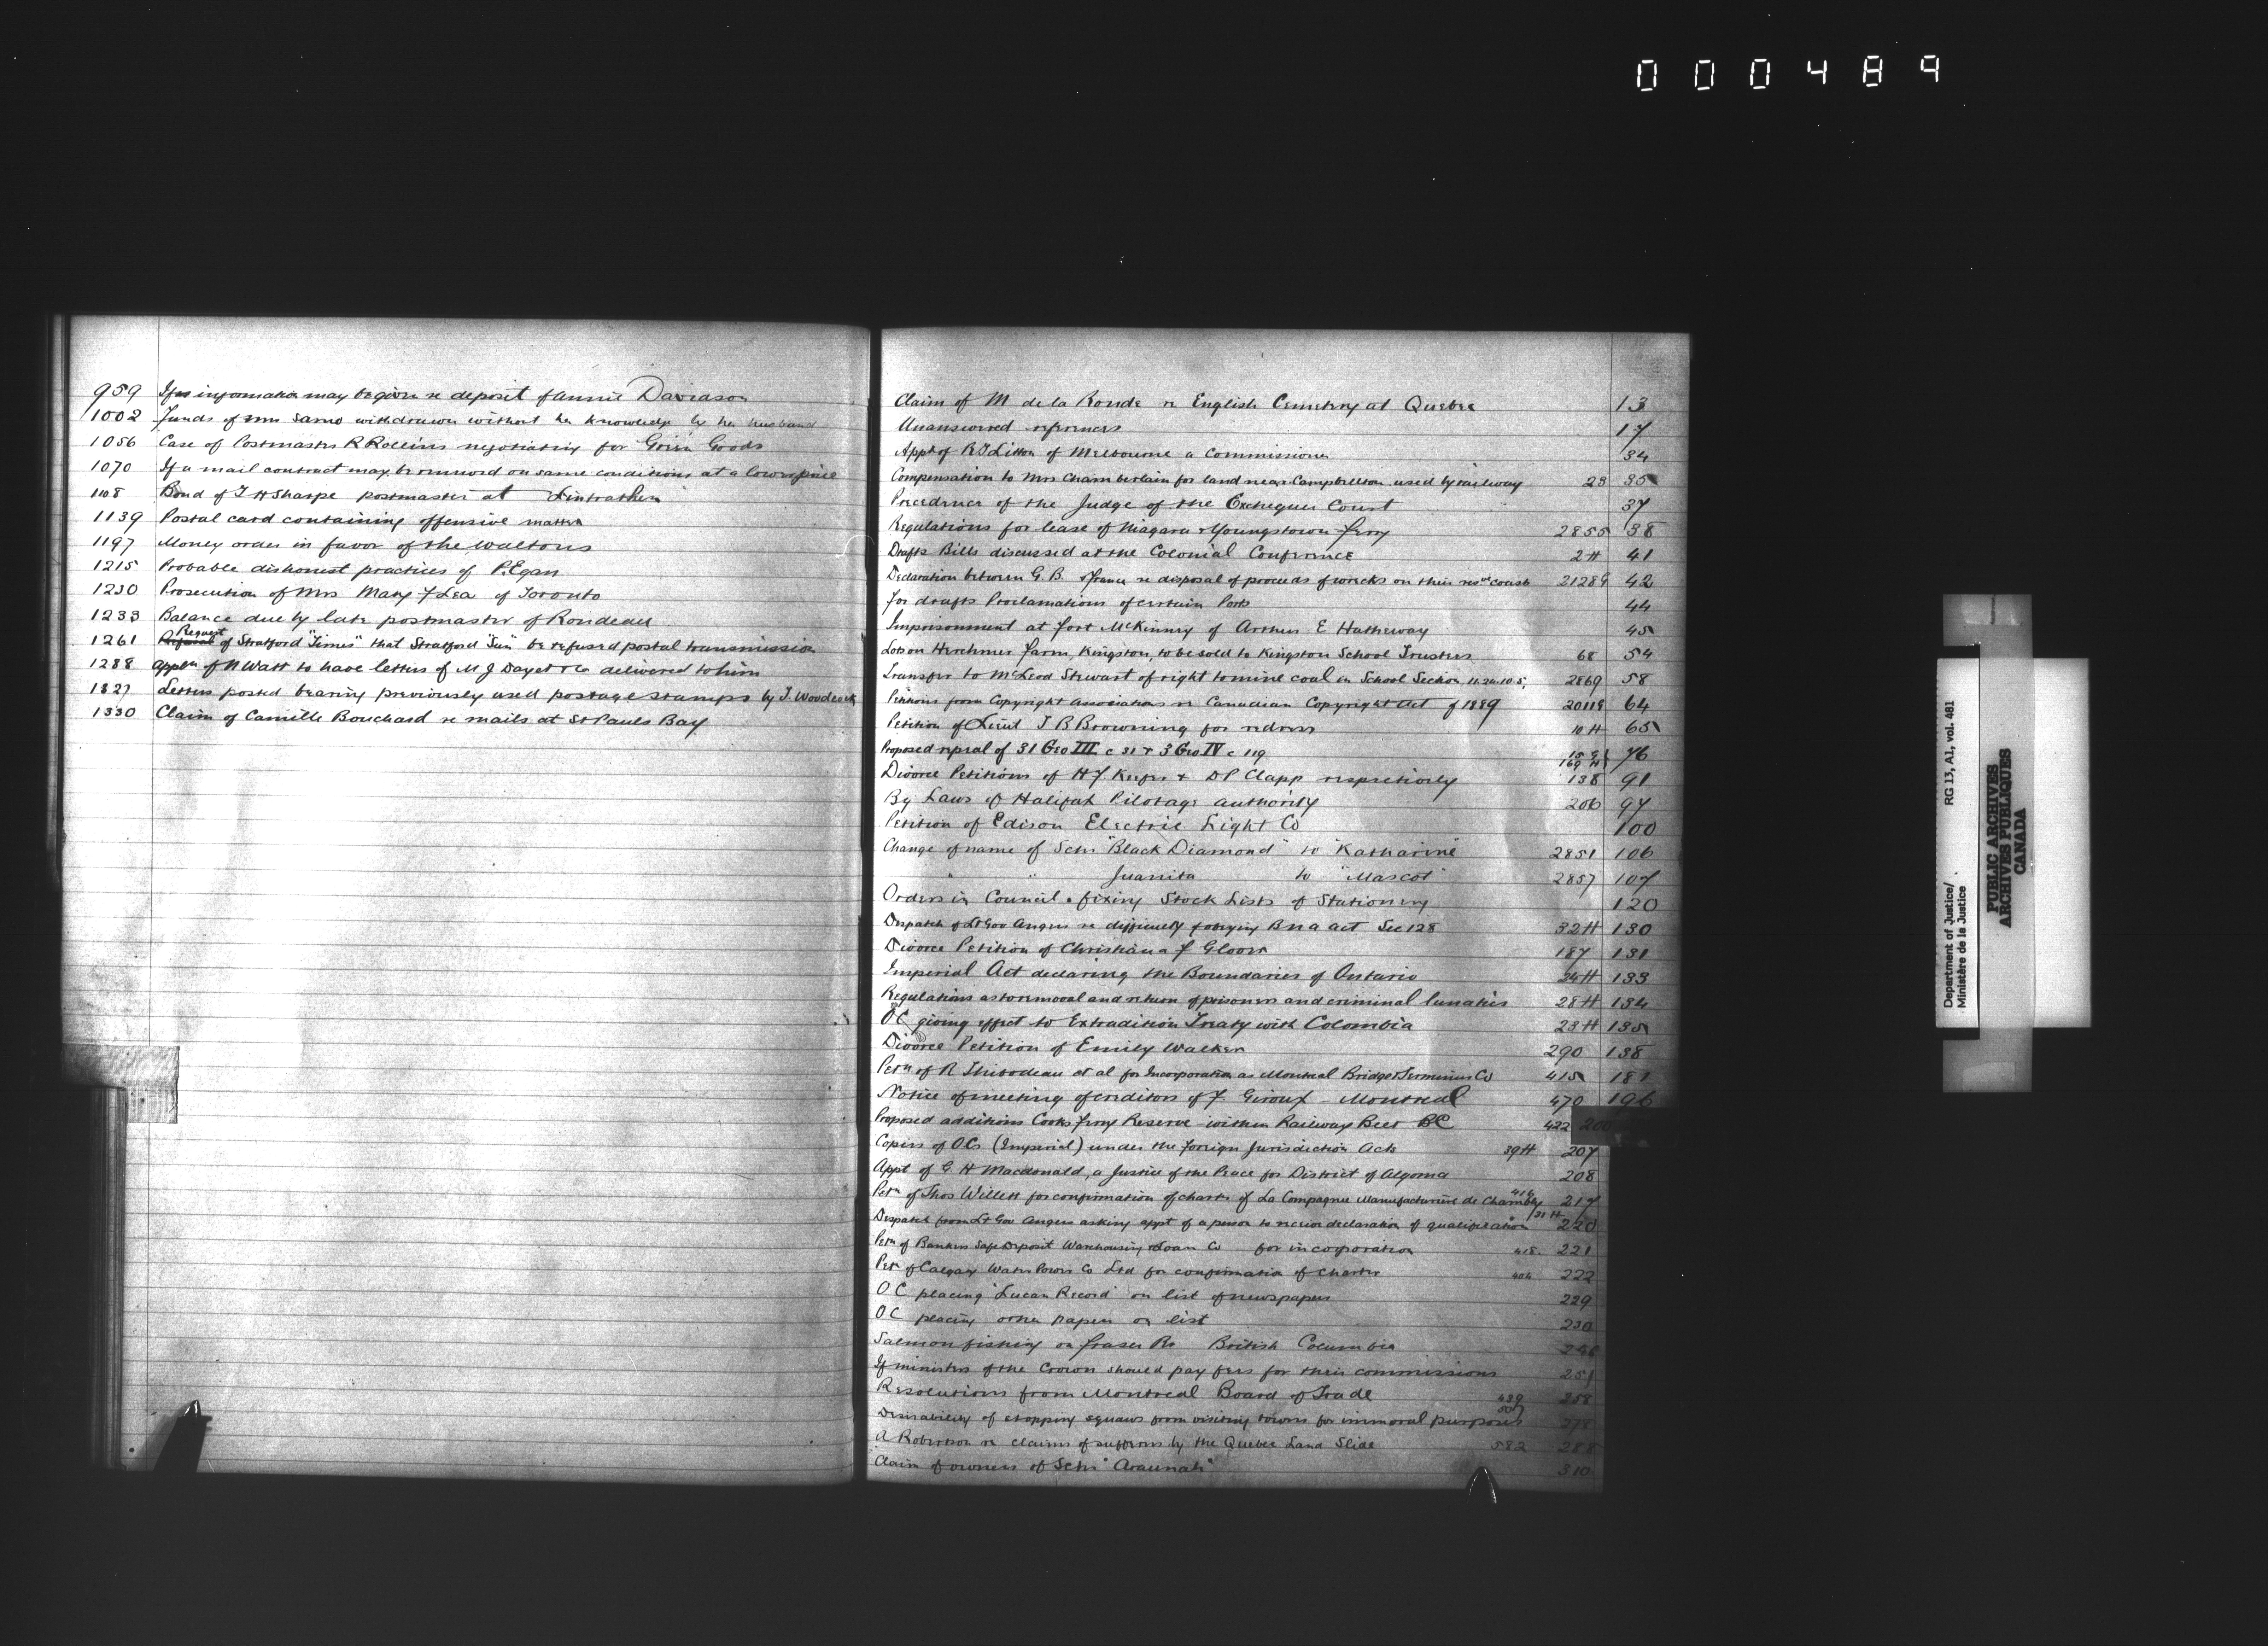 000489
959 If information may be given re deposit of Annie Davidson
1002 Funds of Mrs Samo withdrawn without her knowledge by her husband
1056 Case of Postmaster R Rollins negotiating for Green Goods
1070 If a mail contract may be renewed on same conditions at a lower price
1108 Bond of T H Sharpe postmaster at Lintrathen
1139 Postal card containing offensive matter
1197 Money order in favor of the Waltons
1215 Probable dishonest practices of P. Egan
1230 Prosecution of Mrs Mary F Lea of Toronto
1233 Balance due by late postmaster of Rondeau
Request
1261 of Stratford "Times" that Stratford "Sun" be refused postal transmission
1288 Appln of N Watt to have letters of M J Dayet & Co delivered to him
1327 Letters posted bearing previously used postage stamps by J. Woodcock
1330 Claim of Camille Bouchard re mails at St Pauls Bay
Claim of M de la Ronde re English Cemetery at Quebec 13
Unanswered references 17
Appt of R T Litton of Melbourne a Commissioner 34
Compensation to Mrs Chamberlain for land near Campbellton used by railway 23 35
Precedence of the Judge of the Exchequer Court 37
Regulations for lease of Niagara & Youngstown ferry 2855 38
Drafts Bills discussed at the Colonial Conference 2 H 41
Declaration between G. B. & France re disposal of proceeds of wrecks on their res. coasts 21289 42
For drafts Proclamations of certain Ports 44
Imprisonment at Fort McKinney of Arthur E Hatheway 45
Lots on Herchmer Farm, Kingston, to be sold to Kingston School Trustees 68 54
Transfer to McLeod Stewart of right to mine coal in School Section 11.24.10.5, 2869 58
Petitions from Copyright Associations re Canadian Copyright Act of 1889 20118 64
Petition of Lieut J B Browning for redress 10 H 65
Proposed repeal of 31 Geo III c 31 & 3 Geo IV c 119 15 G 169 H 76
Divorce Petitions of H F Keefer & D P Clapp respectively 138 91
By Laws of Halifax Pilotage authority 206 97
Petition of Edison Electric Light Co 100
Change of name of Schr "Black Diamond" to "Katharine" 2851 106
" " Juanita to "Mascot" 2857 107
Orders in Council fixing Stock Lists of Stationery 120
Despatch of Lt Gov Angers re difficulty of obeying B N A Act Sec 128 32 H 130
Divorce Petition of Christiana F Glover 187 131
Imperial Act declaring the Boundaries of Ontario 24 H 133
Regulations as to removal and return of prisoners and criminal lunatics 28 H 134
OC giving effect to Extradition Treaty with Colombia 23 H 135
Divorce Petition of Emily Walker 290 138
Petn of R Thibodeau et al for Incorporation as Montreal Bridge & Terminus Co 415 181
Notice of meeting of creditors of F Giroux - Montreal 470 196
Proposed additions Cooks Ferry Reserve within Railway Belt BC 422 200
Copies of OCs (Imperial) under the Foreign Jurisdiction Acts 39 H 207
Appt of G H Macdonald, a Justice of the Peace for District of Algoma 208
Petn of Thos Willett for confirmation of charter of La Compagnie Manufacturière de Chambly 416 217
Despatch from Lt Gov Angers asking appt of a person to receive declaration of qualification 31 H 220
Petn of Bankers Safe Deposit Warehousing & Loan Co for incorporation 418 221
Petn of Calgary Water Power Co Ltd for confirmation of charter 404 222
OC placing "Lucan Record" on list of newspapers 229
OC placing other papers on list 230
Salmon fishing on Fraser Rr British Columbia
If ministers of the Crown should pay fees for their commissions 251
Resolutions from Montreal Board of Trade 439 258
Desirability of stopping squaws from visiting towns for immoral purposes 507 278
A Robertson re claims of sufferers by the Quebec Land Slide 582 288
Claim of owners of Schr "Araunah" 310
Department of Justice/
Ministère de la Justice
RG 13, A1, vol. 481
PUBLIC ARCHIVES
ARCHIVES PUBLIQUES
CANADA